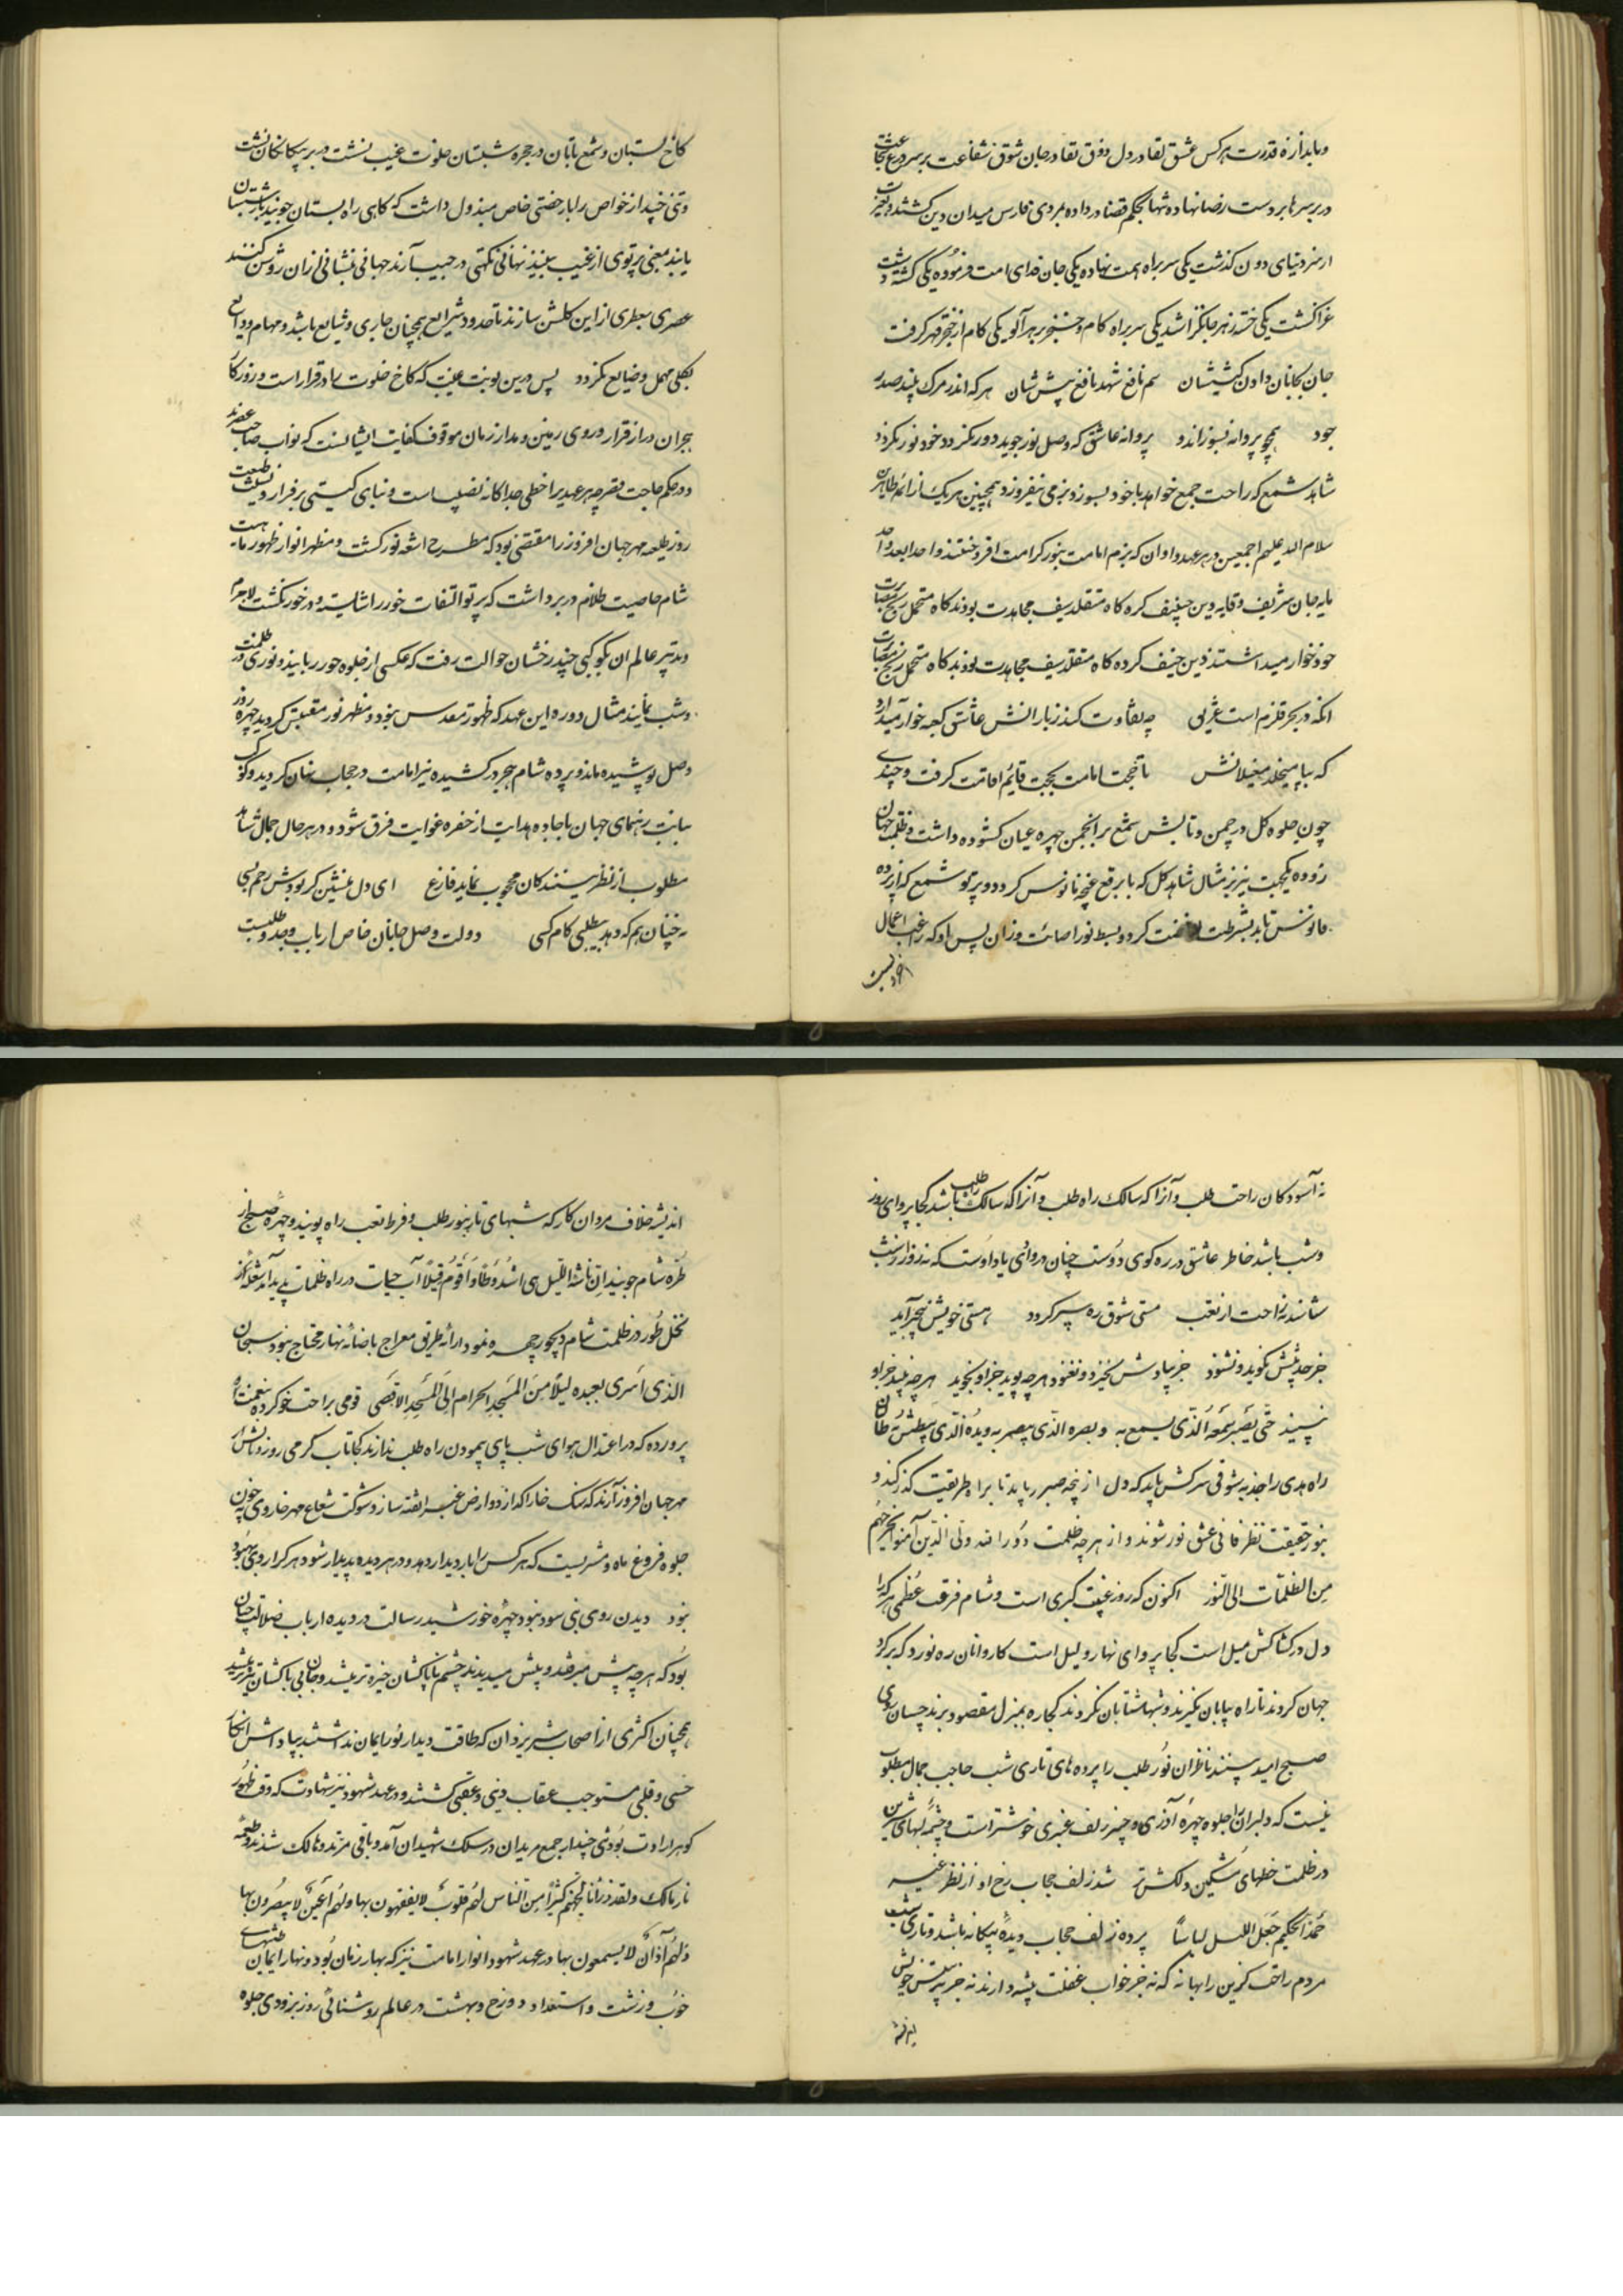 و باندازه قدرت هرکس عشق لقا در دل ذوق تقا در جان شوق شفاعت بر سر درع
در بر سرها بر دست رضا نهاده شها بحکم قضا در داده بمردی فارس میدان دین کشتند و بعزت
از سر دنیای دون گذشت یکی سر براه امت نهاده یکی جان فدای امت فرموده یکی کشته دشت
غرا گشت یکی خسته زهر جانگزا شد یکی سر براه کام و خنجر بزهر آلود یکی کام از خنجر قهر گرفت
جان بجانان دادن کیششان سم نافع شهد نافع پیششان هر که اندر مرگ بیند صد
جود همچو پروانه بسوزاند و پروانه عاشق که وصل نور جوید دور نگردد خود نور نگردد
شاهد شمع که راحت جمع خواهد با خود بسوزد بزمی نیفروزد و همچنین هر یک از ائمه طاهرین
سلام الله علیهم اجمعین در هر عهد و اوان که بزم امامت بنور کرامت افروختند واحدا بعد واحد
مایه جان شریف وقایه دین حنیف کرده گاه متقلد سیف مجاهدت بودند گاه متحمل رنج
خود خوار میداشتند دین حنیف کرده گاه متقلد سیف مجاهدت بودند گاه متحمل رنج
آنکه در بحر قلزم است غریق چه تفاوت کند ز بارانش عاشق کعبه خوار میدارد
که بپا میخلد مغیلانش تا حجت امامت بحجت قائم اقامت گرفت و چندی
چون جلوه گل در چمن و تابش شمع بر انجمن چهره عیان گشوده داشت و ظلمت جهان
زدوده یکجهت نیز بر مثال شاهد گل که با برقع غنچه مانوس گردد و پرتو شمع که از پرده
فانوس تابد بشرطت کرد و بسط نور اصائت و زان پس او که راغب اعمال
کاخ بستان و شمع تابان در حجره شبستان خلوت غیب نشست در بر بیکانگان نشست
و تنی چند از خواص را با رخصتی خاص مبذول داشت که گاهی راه بستان جویند تا شبستان
یابند یعنی پرتوی از غیب بینند نهانی نکهتی در جیب آرند جهانی بنشانی از آن روشن کنند
عصری بعطری از این گلشن سازند تا حدود شرایع همچنان جاری و شایع باشد و مهام ودایع
بکلی مهمل و ضایع نگردد پس درین نوبت غیبت که کاخ خلوت را در قرار است و روزگار
هجران دراز قرار در روی زمین و مدار زمان موقوف کفایت ایشانست که نواب صاحب عصرند
و در حکم حاجت بقصر چه هر عید را خطی جداگانه نصیب است و بنای گیتی بر فراز و
روز طلعه مهر جهان افروز را مقتضی بود که مطرح اشعه نور گشت و مظهر انوار ظهور ماهیت
شام خاصیت ظلام در بر داشت که پرتو التفات خور را شایسته و در خور نگشت لاجرم
تدبیر عالم آن بکوکبی چند رخشان حوالت رفت که عکسی از جلوه خور ربایند و نوری در ظلمت
شب نمایند مثال دوره این عهد که ظهور مقدس بود و مظهر نور مقتبس گردید چهره روز
وصل پوشیده ماند و پرده شام هجر در کشیده نیر امامت در حجاب نهان گردید و کوکب
نیابت رهنمای جهان تا جاده هدایت از حفره غوایت فرق شود و در هر حال جمال شاهد
مطلوب از نظر بینندکان محجوب نماید فارغ ای دل منشین گر بودش رحم بسی
نه چنان هم که دهد بیطلبی کام کسی دولت وصل جانان خاص ارباب وجد و طلبست
نه آسودگان راحت طلب و آنرا که سالک راه طلب و آنرا که سالک راه طلب باشد کجا پروای روز
و شب باشد خاطر عاشق در ره کوی دوست چنان در وای یاد اوست که نه روز از شب
شناسد نه راحت از تعب مستی شوق ره سپر گردد هستی خویش بیخبر آید
جز حدیثش نگوید و نشنود جز بیادش نخیزد و نغنود هرچه پوید جز او نجوید هرچه بیند جز او
نبیند حتی یصیر سمعه الذی یسمع به و بصره الذی یبصر به و یده الذی یبطش
راه هدی را جذبه شوقی سرکش باید که دل از پنجه صبر رباید تا براه طریقت گذر کند و
بنور حقیقت نظر فانی عشق نور شوند و از هر چه ظلمت دور الله ولی الذین آمنوا یخرجهم
من الظلمات الی النور اکنون که روز غیبت کبری است و شام فرقت عظمی هر که را
دل در کشاکش میل است کجا پروای نهار و لیل است کاروانان ره نورد که بر گرد
جهان گردند تا راه بیابان نگیرند و شبها شتابان نگردند کجا ره بمنزل مقصود برند چسان روی
صبح امید بینند ناظران نور طلب را پرده های تاری شب حاجب جمال مطلوب
نیست که دلبران را جلوه چهره آذری در چنبر زلف عنبری خوشتر است و چشمه لبهای شیرین
در ظلمت خطهای مشکین دلکش تر شد زلف حجاب رخ او از نظر غیر
حمدا لحکیم جعل اللیل لباسا پرده زلف حجاب دیده بیکانه باشد و تاری شب
مردم راحت گزین را بهانه که نه جز خواب غفلت پیشه دارند نه جز پرستش خویش
اندیشه خلاف مردان کار که شبهای تار بنور طلب و فرط تعب راه پویند و چهره صبح از
طره شام جویند ان ناشئة اللیل هی اشد وطأ و اقوم قیلا آب حیات در راه ظلمات پدید آمد شعله نار
نخل طور در ظلمت شام دیجور چهره نمود ارائه طریق معراج باضائه نهار محتاج نبود سبحان
الذی اسری بعبده لیلا من المسجد الحرام الی المسجد الاقصی قومی براحت خو کرده بنعمت
پرورده که در اعتدال هوای شب پای پیمودن راه طلب ندارند کجا تاب گرمی روز و تابش
مهر جهان افروز آرند که سنگ خارا گدازد و ارض غبرا تفته سازد شوکت شعاع مهر خاوری چون
جلوه فروغ ماه و مشتریست که هر کس را بار دیدار دهد و در هر دیده پدیدار شود هر که را روی بهبود
نبود دیدن روی نبی سود نبود چهره خورشید رسالت در دیده ارباب ضلالت چنان
بود که هر چه بیش میرفتند و بیش میدیدند چشم ناپاکشان خیره تر میشد و جان بی باکشان تیره تر میشد
همچنان اکثری از اصحاب شیر یزدان که طاقت دیدار نور ایمان نداشتند بپاداش انکار
حسی و قلبی مستوجب عقاب دنیی و عقبی گشتند و در عهد شهود نیر شهادت که وقت ظهور
گوهر ارادت بود تنی چند از جمع مریدان در سلک شهیدان آمد و باقی مرتد و هالک شدند و طعمه
نار مالک و لقد ذرأنا لجهنم کثیرا من الناس لهم قلوب لا یفقهون بها و لهم اعین لا یبصرون بها
و لهم آذان لا یسمعون بها در عهد شهود انوار امامت نیز که بهار زمان بود و نهار ایمان
خوب و زشت و استعداد دوزخ و بهشت در عالم روشنائی روز بزودی جلوه